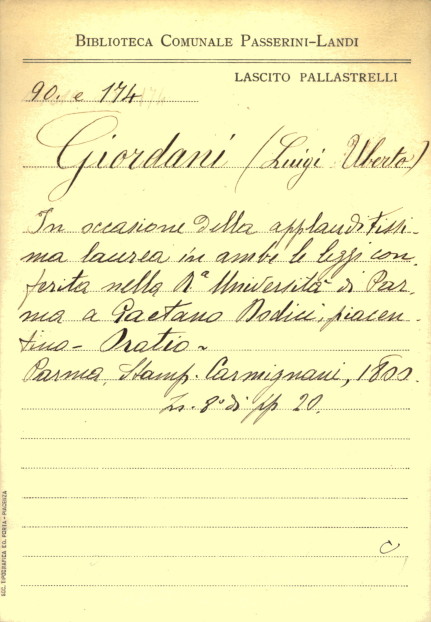 BIBLIOTECA COMUNALE PASSERINI-LANDI
LASCITO PALLASTRELLI
90. e 174
Giordani (Luigi Uberto)
In occasione della applauditissi-
ma laurea in ambe le leggi con-
ferita nella Rª Università di Par-
ma a Gaetano Dodici, piacen-
tino - Oratio -
Parma, Stamp. Carmignani, 1800.
In-8º di pp 20.
C
SOC. TIPOGRAFICA ED. PORTA - PIACENZA